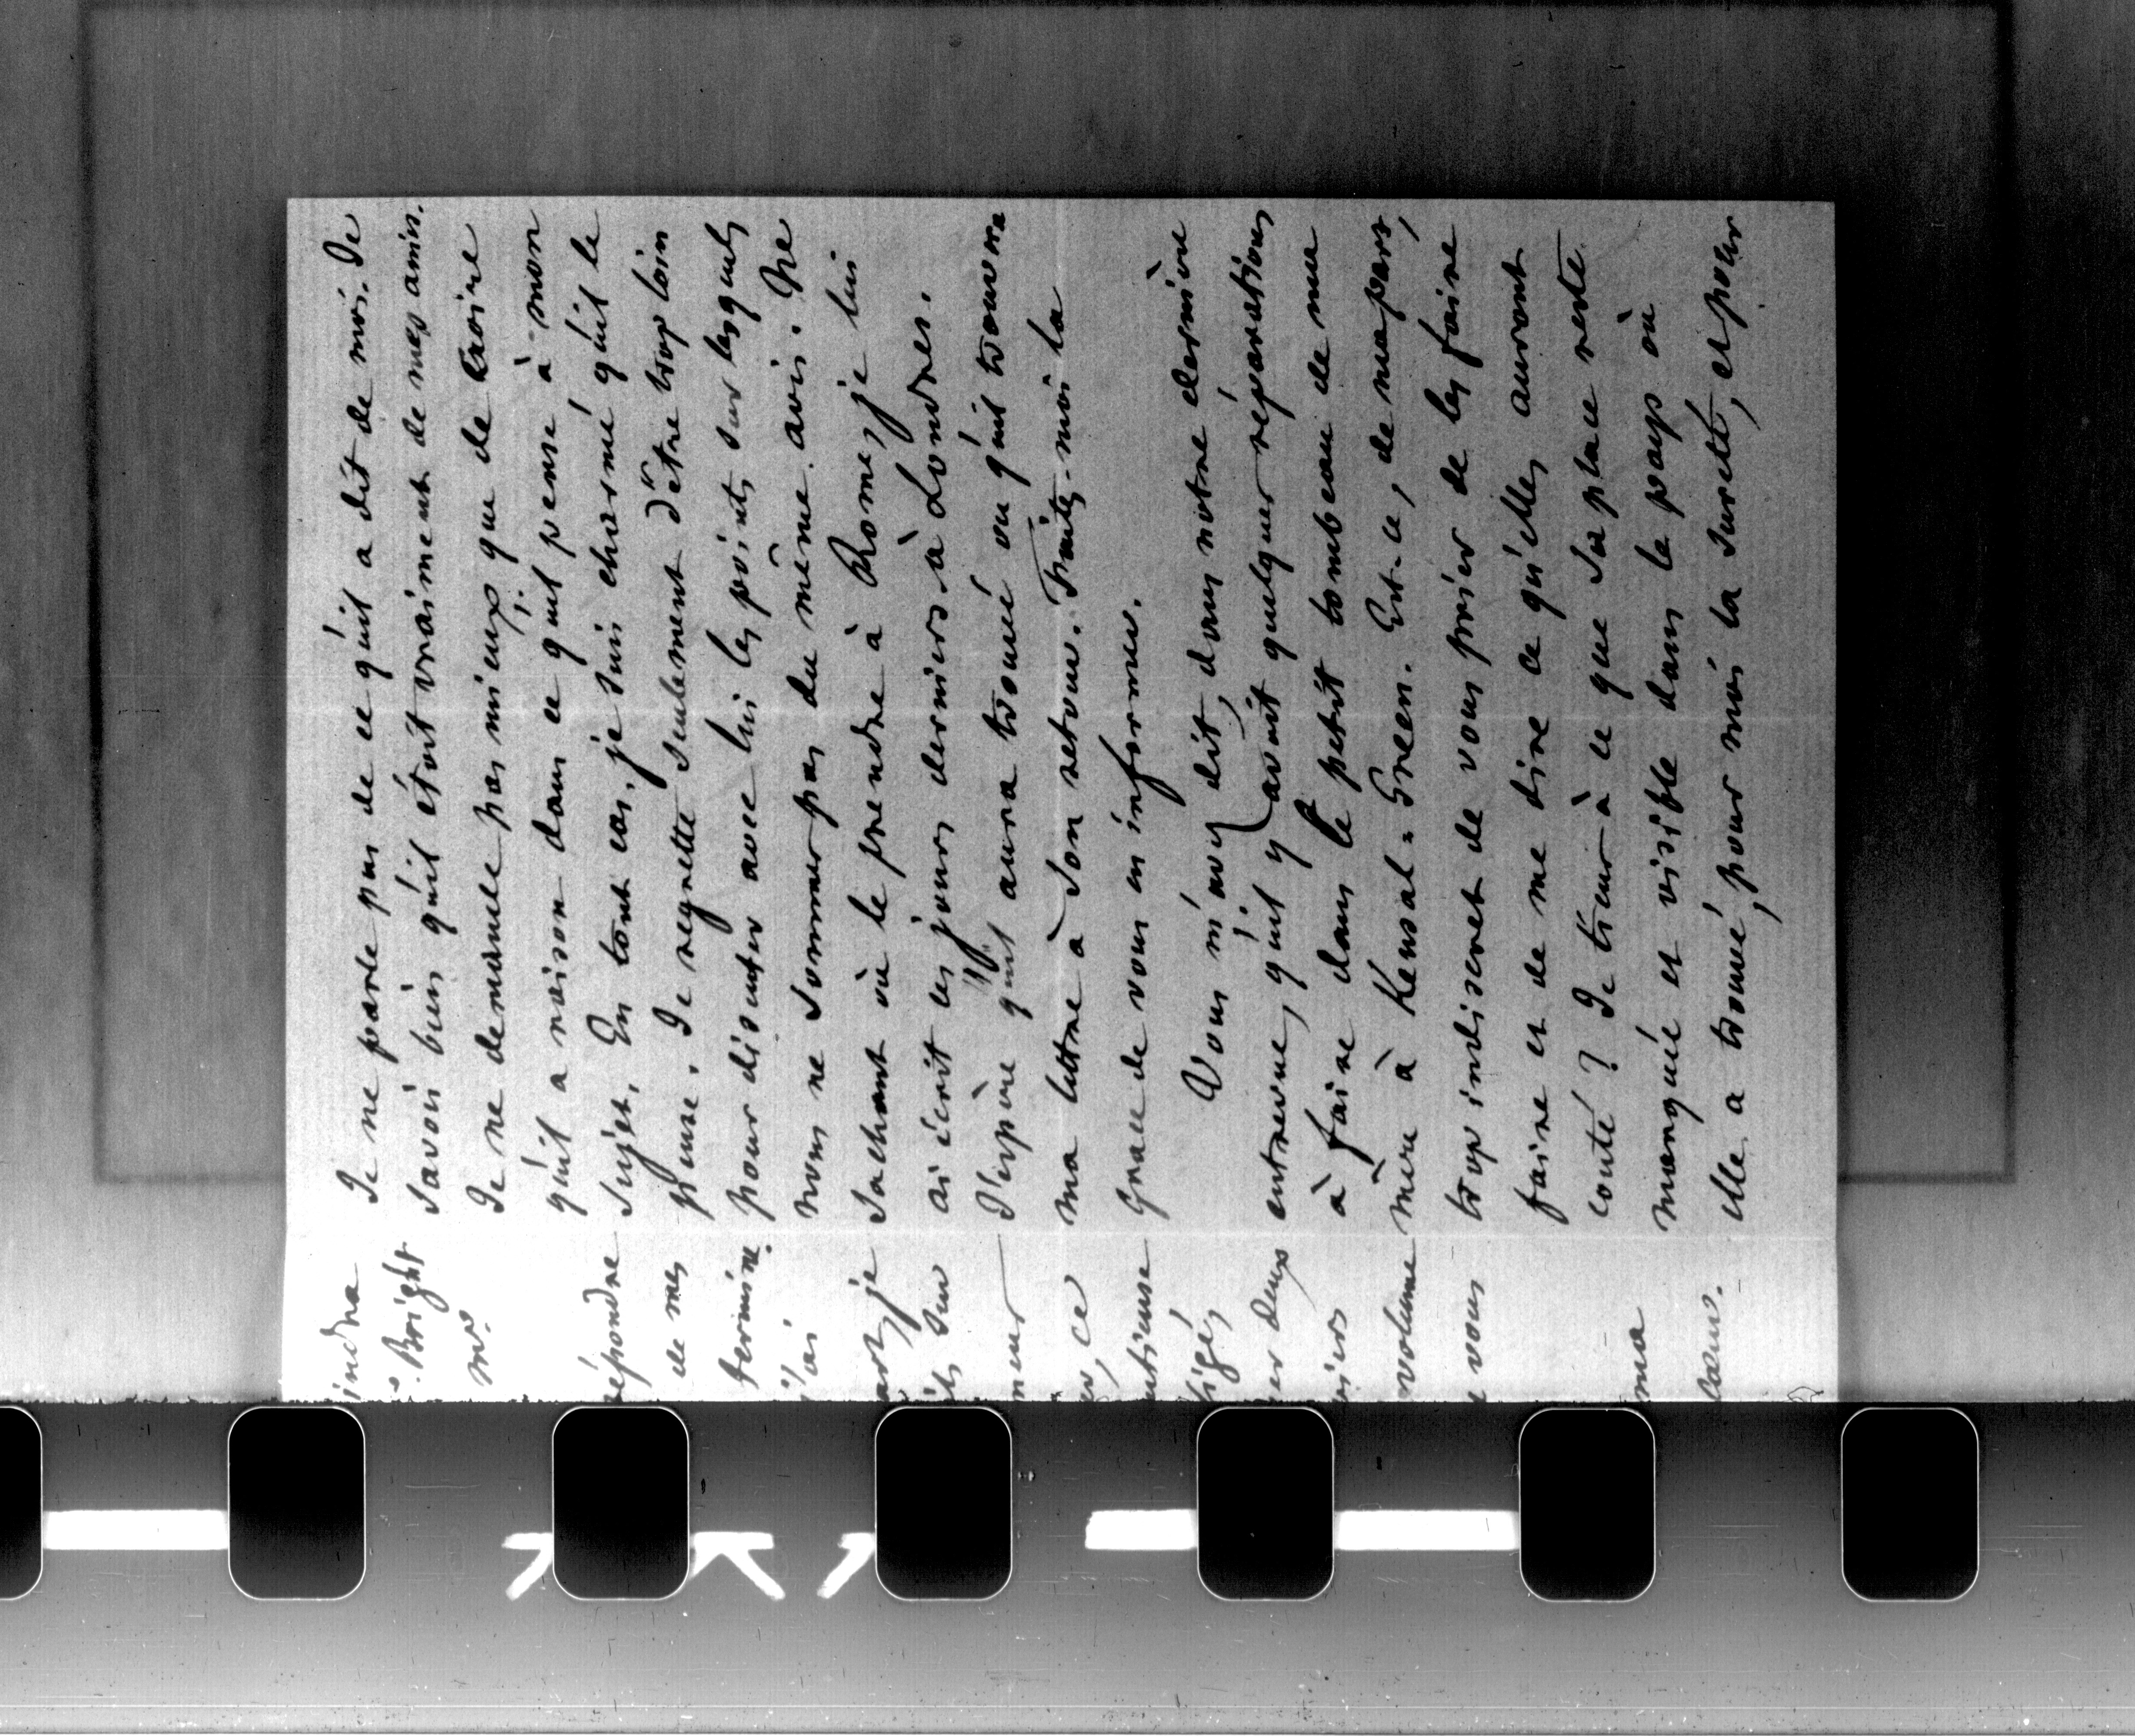 Je ne parle pas de ce qu'il a dit de moi. Je
savois bien qu'il étoit vraiment de mes amis.
Je ne demande pas mieux que de croire
qu'il a raison dans ce qu'il pense à mon
sujet. En tout cas, je suis charmé qu'il le
pense. Je regrette seulement d'être trop loin
pour discuter avec lui les points sur lesquels
nous ne sommes pas du même avis. Ne
sachant où le prendre à Rome, je lui
ai écrit ces jours derniers à Londres.
J'espère qu'il aura trouvé ou qu'il trouvera
ma lettre à son retour. Faites-moi la
grace de vous en informer.
Vous m'avez dit, dans notre dernière
entrevue, qu'il y avoit quelques réparations
à faire dans le petit tombeau de ma
mère à Kensal-Green. Est-ce, de ma part,
trop indiscret de vous prier de les faire
faire et de me dire ce qu'elles auront
couté? Je tiens à ce que sa place reste
marquée et visible dans le pays où
elle a trouvé, pour moi la sureté, et pour
indra
Bright
me.
répondre
de mes
termine.
j'ai
je
sur
ce
deux
volume
vous
ma